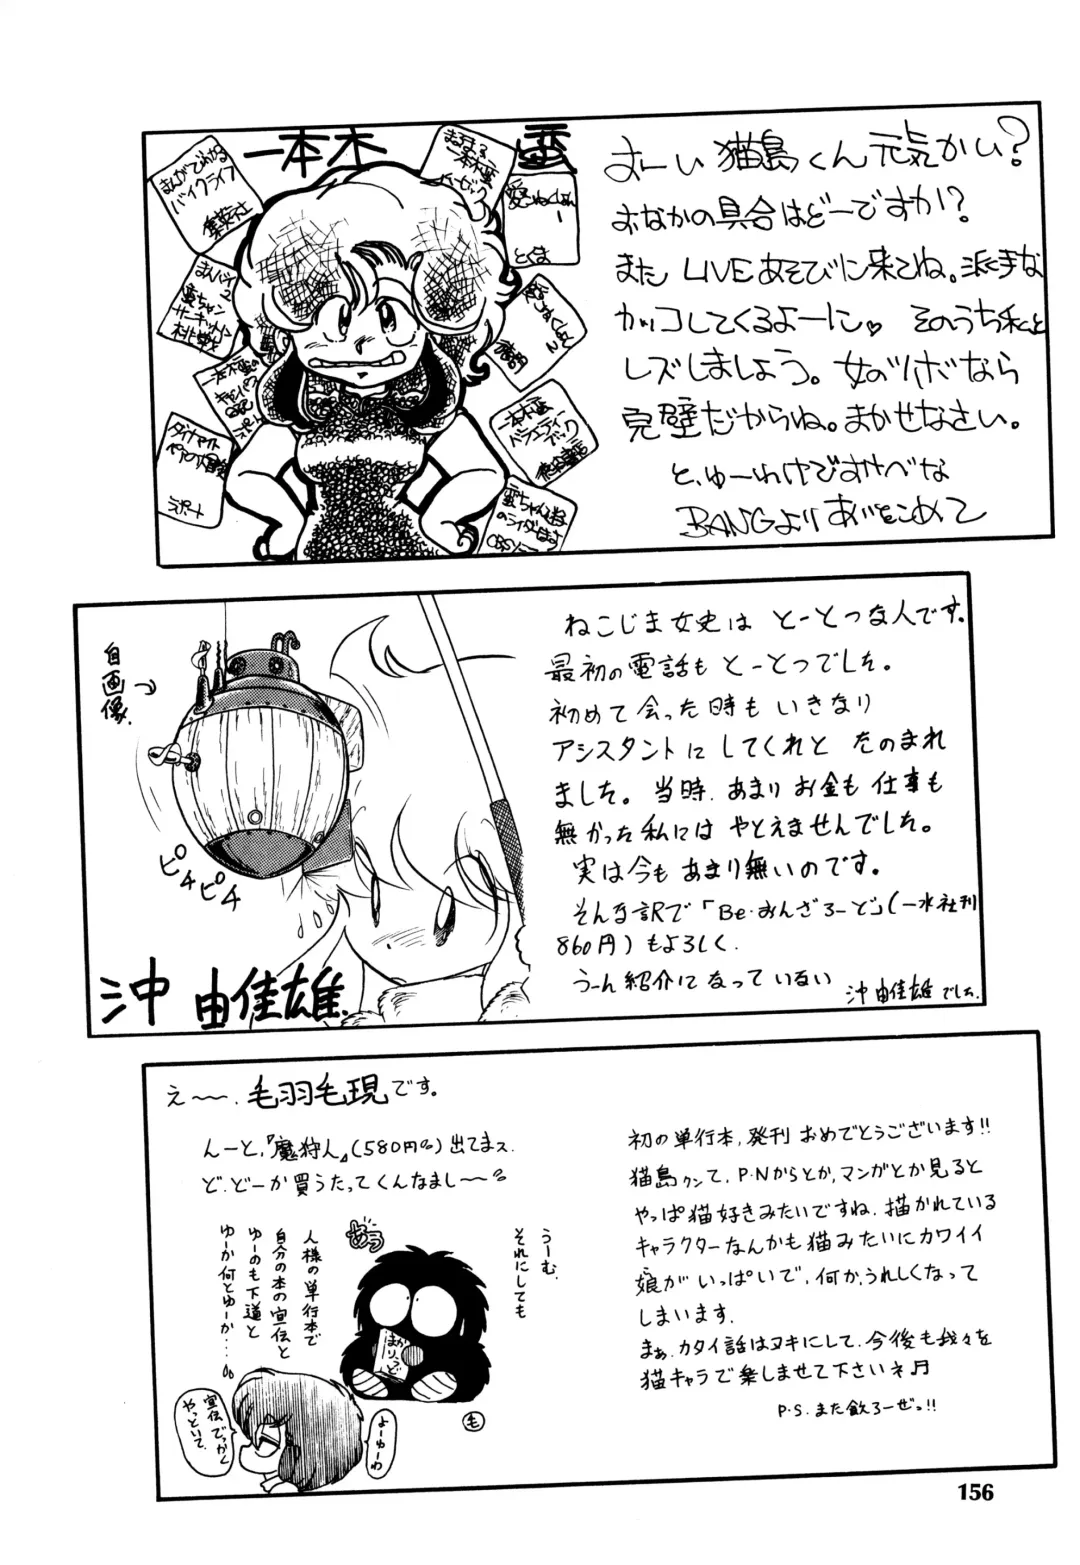 一本木 蛮
まんがでわかる
バイクライフ
集英社
おーい 猫島くん元気かい?
おなかの具合はどーですか!?
また LIVEあそびに来てね。派手な
カッコしてくるよーに♥ そのうち私と
レズしましょう。女のツボなら
完璧だからね。まかせなさい。
と、ゆーわけですけべな
BANGより あいをこめて
自画像
ピチピチ
沖 由佳雄
ねこじま女史は とーとつな人です。
最初の電話も とーとつでした。
初めて会った時も いきなり
アシスタントに してくれと たのまれ
ました。当時、あまり お金も 仕事も
無かった 私には やとえませんでした。
実は今も あまり無いのです。
そんな訳で「Be・おんざろーど」(一水社刊
860円)もよろしく。
うーん 紹介に なって いない
沖 由佳雄 でした。
え〜〜、毛羽毛現です。
んーと、『魔狩人』(580円)出てまス。
ど、どーか買うたってくんなまし〜〜
うーむ、
それにしても
あう
人様の単行本で
自分の本の宣伝と
ゆーのも下道と
ゆーか何とゆーか…。
まかりうど
毛
よーゆーわ
宣伝でっかく
やっといて
初の単行本、発刊 おめでとうございます!!
猫島クンて、P・Nからとか、マンガとか見ると
やっぱ猫好きみたいですね、描かれている
キャラクターなんかも猫みたいにカワイイ
娘が いっぱいで、何か、うれしくなって
しまいます。
まぁ、カタイ話はヌキにして、今後も我々を
猫キャラで楽しませて下さいネ♬
P.S. また飲ろーぜっ!!
156